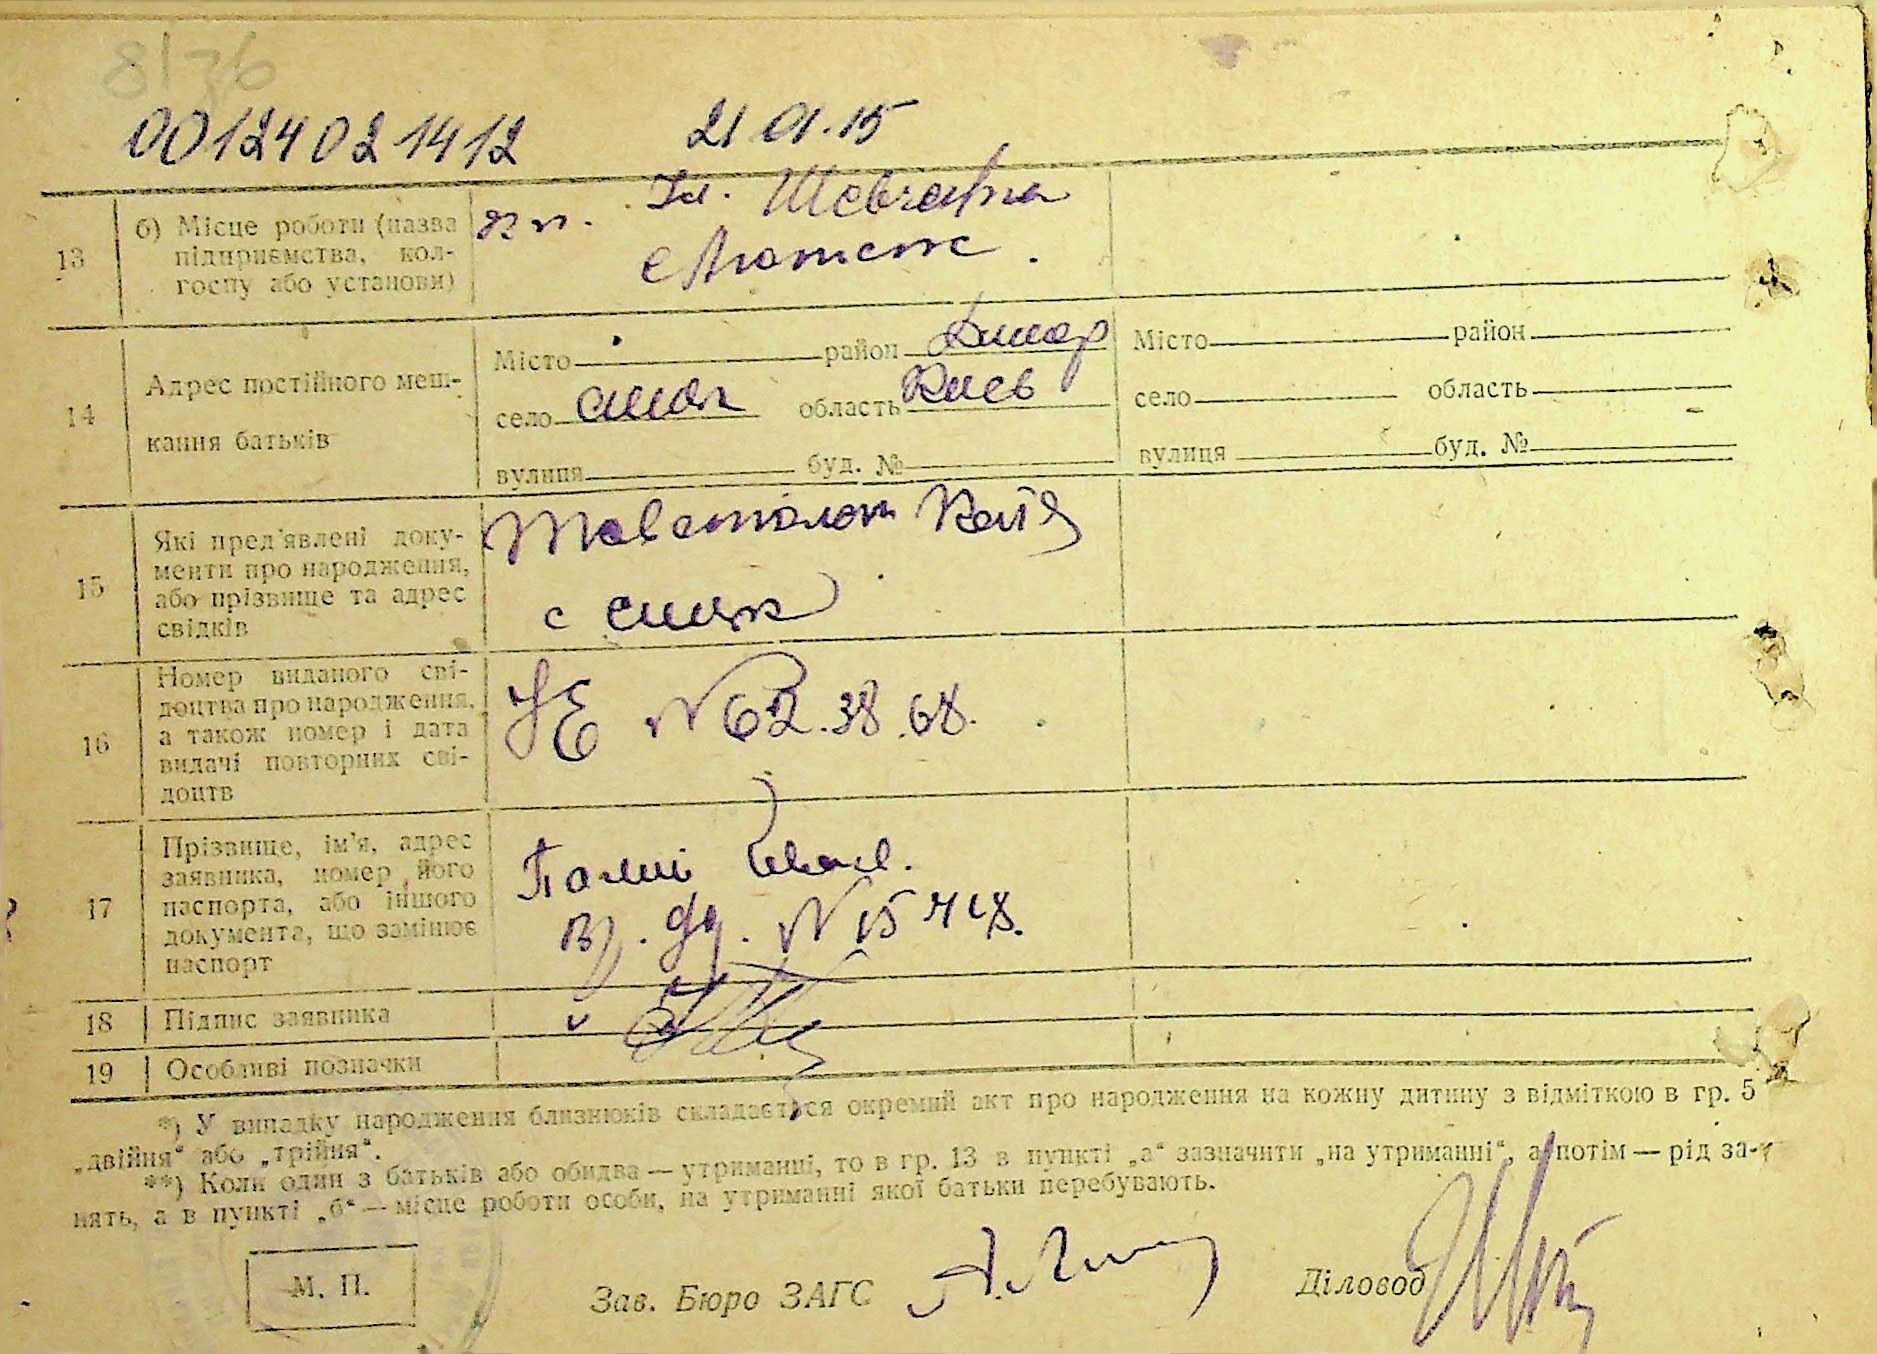 00124021412 21 01.15
13 б) Місце роботи (назва підприємства, колгоспу або установи)
ім. Шевченка
14 Адрес постійного мешкання батьків
Місто район Димер Місто район
село область Київ село область
вулиця буд. № вулиця буд. №
15 Які пред'явлені документи про народження, або прізвище та адрес свідків
Катя
с
16 Номер виданого свідоцтва про народження, а також номер і дата видачі повторних свідоцтв
УЄ № 62.38.68.
17 Прізвище, ім'я, адрес заявника, номер його паспорта, або іншого документа, що замінює паспорт
18 Підпис заявника
19 Особливі позначки
*) У випадку народження близнюків складається окремий акт про народження на кожну дитину з відміткою в гр. 5
„двійня“ або „трійня“.
**) Коли один з батьків або обидва — утриманці, то в гр. 13 в пункті „а“ зазначити „на утриманні“, а потім — рід за-
нять, а в пункті „б“ — місце роботи особи, на утриманні якої батьки перебувають.
М. П. Зав. Бюро ЗАГС Діловод